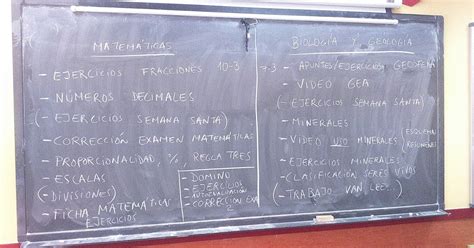 MATEMÁTICAS
- EJERCICIOS FRACCIONES 10-3
- NÚMEROS DECIMALES
(- EJERCICIOS SEMANA SANTA)
- CORRECCIÓN EXAMEN MATEMÁTICAS
- PROPORCIONALIDAD, %, REGLA TRES
- ESCALAS
(- DIVISIONES)
- FICHA MATEMÁTICAS
EJERCICIOS
- DOMINO
- EJERCICIOS
AUTOEVALUACIÓN
- CORRECCIÓN
BIOLOGÍA Y GEOLOGIA
7-3 - APUNTES/EJERCICIOS
- VIDEO GEA
(- EJERCICIOS SEMANA SANTA)
- MINERALES
- VIDEO MINERALES (ESQUEMA
RESUMEN)
- EJERCICIOS MINERALES
- CLASIFICACIÓN SERES VIVOS
(- TRABAJO VAN LEE...)